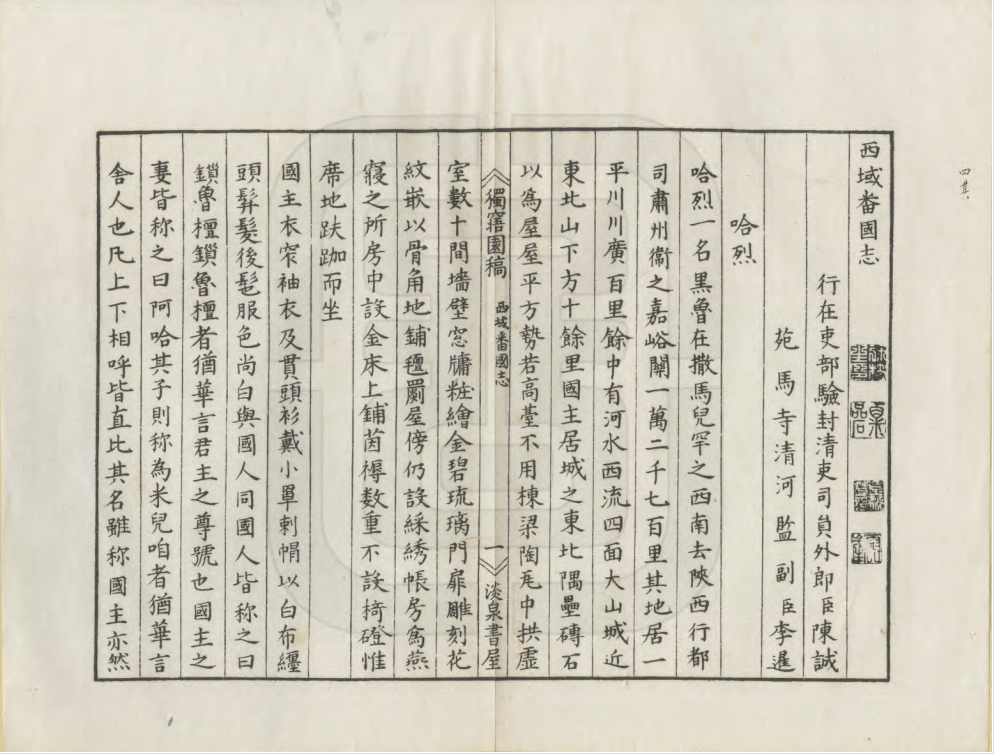 西域番國志
行在吏部驗封清吏司員外郎臣陳誠
苑馬寺清河監副臣李暹
哈烈
哈烈一名黑魯在撒馬兒罕之西南去陝西行都
司肅州衞之嘉峪關一萬二千七百里其地居一
平川川廣百里餘中有河水西流四面大山城近
東北山下方十餘里國主居城之東北隅壘磚石
以為屋屋平方勢若高臺不用棟梁陶瓦中拱虛
獨寤園稿 西域番國志 一 淡泉書屋
室數十間墻壁窓牖粧繪金碧琉璃門扉雕刻花
紋嵌以骨角地鋪氊罽屋傍仍設綵綉帳房為燕
寢之所房中設金床上鋪茵褥數重不設椅磴惟
席地趺跏而坐
國主衣窄袖衣及貫頭衫戴小罩剌帽以白布纏
頭髼髮後髡服色尚白與國人同國人皆称之曰
鎖魯檀鎖魯檀者猶華言君主之尊號也國主之
妻皆称之曰阿哈其子則称為米兒咱者猶華言
舍人也凡上下相呼皆直比其名雖称國主亦然